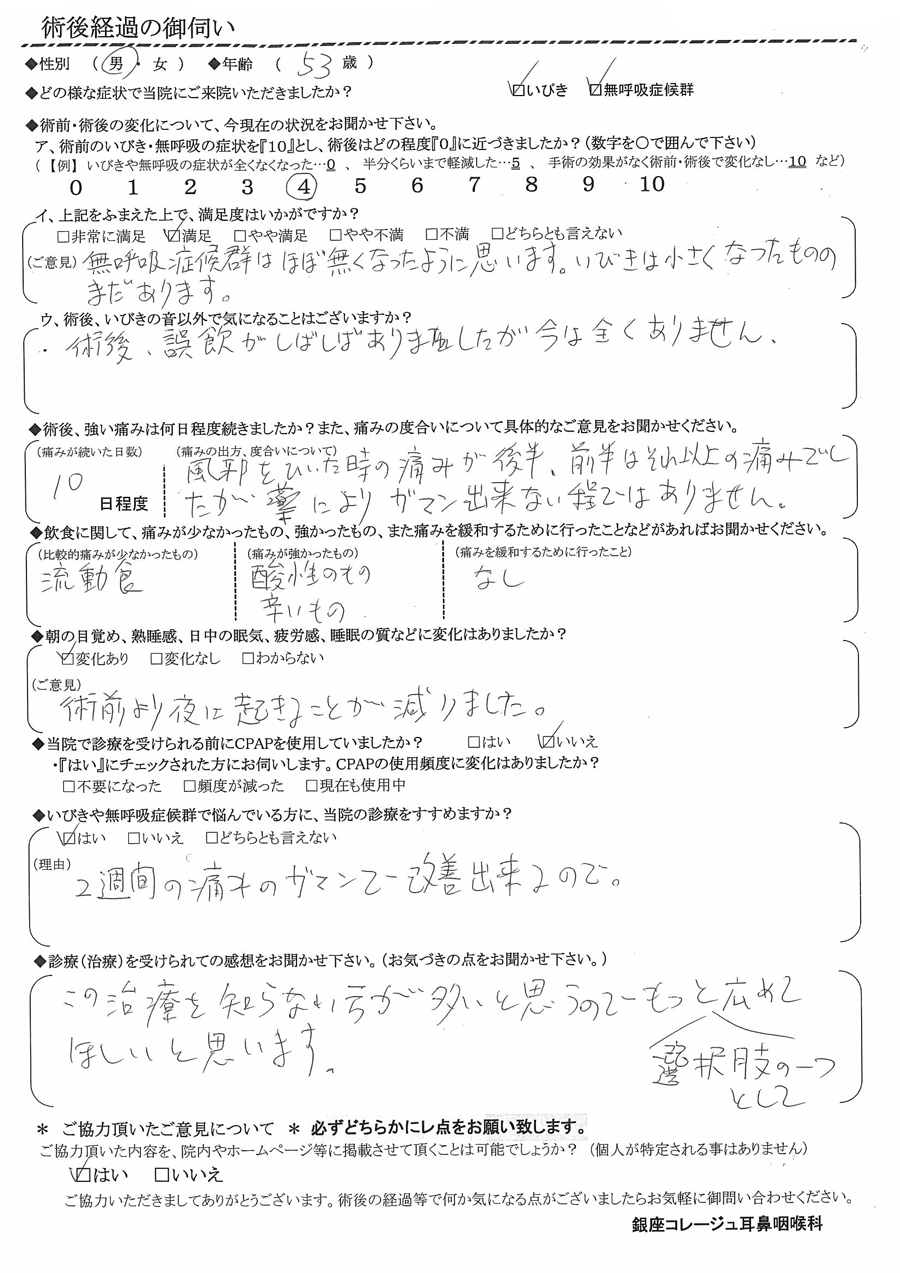 術後経過の御伺い
◆性別 （ 男 ・ 女 ） ◆年齢 （ 53 歳 ）
◆どの様な症状で当院にご来院いただきましたか？ ☑いびき ☑無呼吸症候群
◆術前・術後の変化について、今現在の状況をお聞かせ下さい。
ア、術前のいびき・無呼吸の症状を『10』とし、術後はどの程度『0』に近づきましたか？（数字を〇で囲んで下さい）
（【例】いびきや無呼吸の症状が全くなくなった…0 、 半分くらいまで軽減した…5 、 手術の効果がなく術前・術後で変化なし…10 など）
0 1 2 3 4 5 6 7 8 9 10
イ、上記をふまえた上で、満足度はいかがですか？
□非常に満足 ☑満足 □やや満足 □やや不満 □不満 □どちらとも言えない
（ご意見） 無呼吸症候群はほぼ無くなったように思います。いびきは小さくなったものの
まだあります。
ウ、術後、いびきの音以外で気になることはございますか？
・術後、誤飲がしばしばありましたが今は全くありません、
◆術後、強い痛みは何日程度続きましたか？また、痛みの度合いについて具体的なご意見をお聞かせください。
（痛みが続いた日数） （痛みの出方、度合いについて）
風邪をひいた時の痛みが後半、前半はそれ以上の痛みでし
10 日程度 たが薬によりガマン出来ない程ではありません。
◆飲食に関して、痛みが少なかったもの、強かったもの、また痛みを緩和するために行ったことなどがあればお聞かせください。
（比較的痛みが少なかったもの） （痛みが強かったもの） （痛みを緩和するために行ったこと）
流動食 酸性のもの なし
辛いもの
◆朝の目覚め、熟睡感、日中の眠気、疲労感、睡眠の質などに変化はありましたか？
☑変化あり □変化なし □わからない
（ご意見）
術前より夜に起きることが減りました。
◆当院で診療を受けられる前にCPAPを使用していましたか？ □はい ☑いいえ
・『はい』にチェックされた方にお伺いします。CPAPの使用頻度に変化はありましたか？
□不要になった □頻度が減った □現在も使用中
◆いびきや無呼吸症候群で悩んでいる方に、当院の診療をすすめますか？
☑はい □いいえ □どちらとも言えない
（理由） 2週間の痛みのガマンで改善出来るので。
◆診療（治療）を受けられての感想をお聞かせ下さい。（お気づきの点をお聞かせ下さい。）
この治療を知らない方が多いと思うのでもっと広めて
ほしいと思います。
選択肢の一つ
として
＊ ご協力頂いたご意見について ＊ 必ずどちらかにレ点をお願い致します。
ご協力頂いた内容を、院内やホームページ等に掲載させて頂くことは可能でしょうか？（個人が特定される事はありません）
☑はい □いいえ
ご協力いただきましてありがとうございます。術後の経過等で何か気になる点がございましたらお気軽に御問い合わせください。
銀座コレージュ耳鼻咽喉科